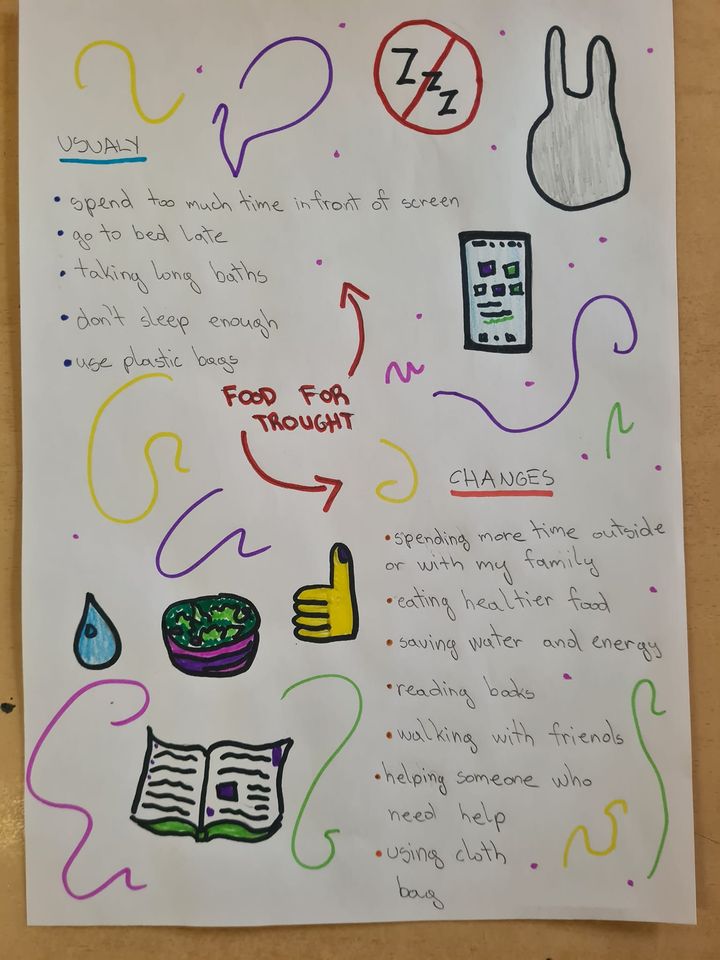 Z
Z
Z
USUALY
• spend too much time infront of screen
• go to bed late
• taking long baths
• don't sleep enough
• use plastic bags
FOOD FOR
TROUGHT
CHANGES
• spending more time outside
or with my family
• eating healtier food
• saving water and energy
• reading books
• walking with friends
• helping someone who
need help
• using cloth
bag